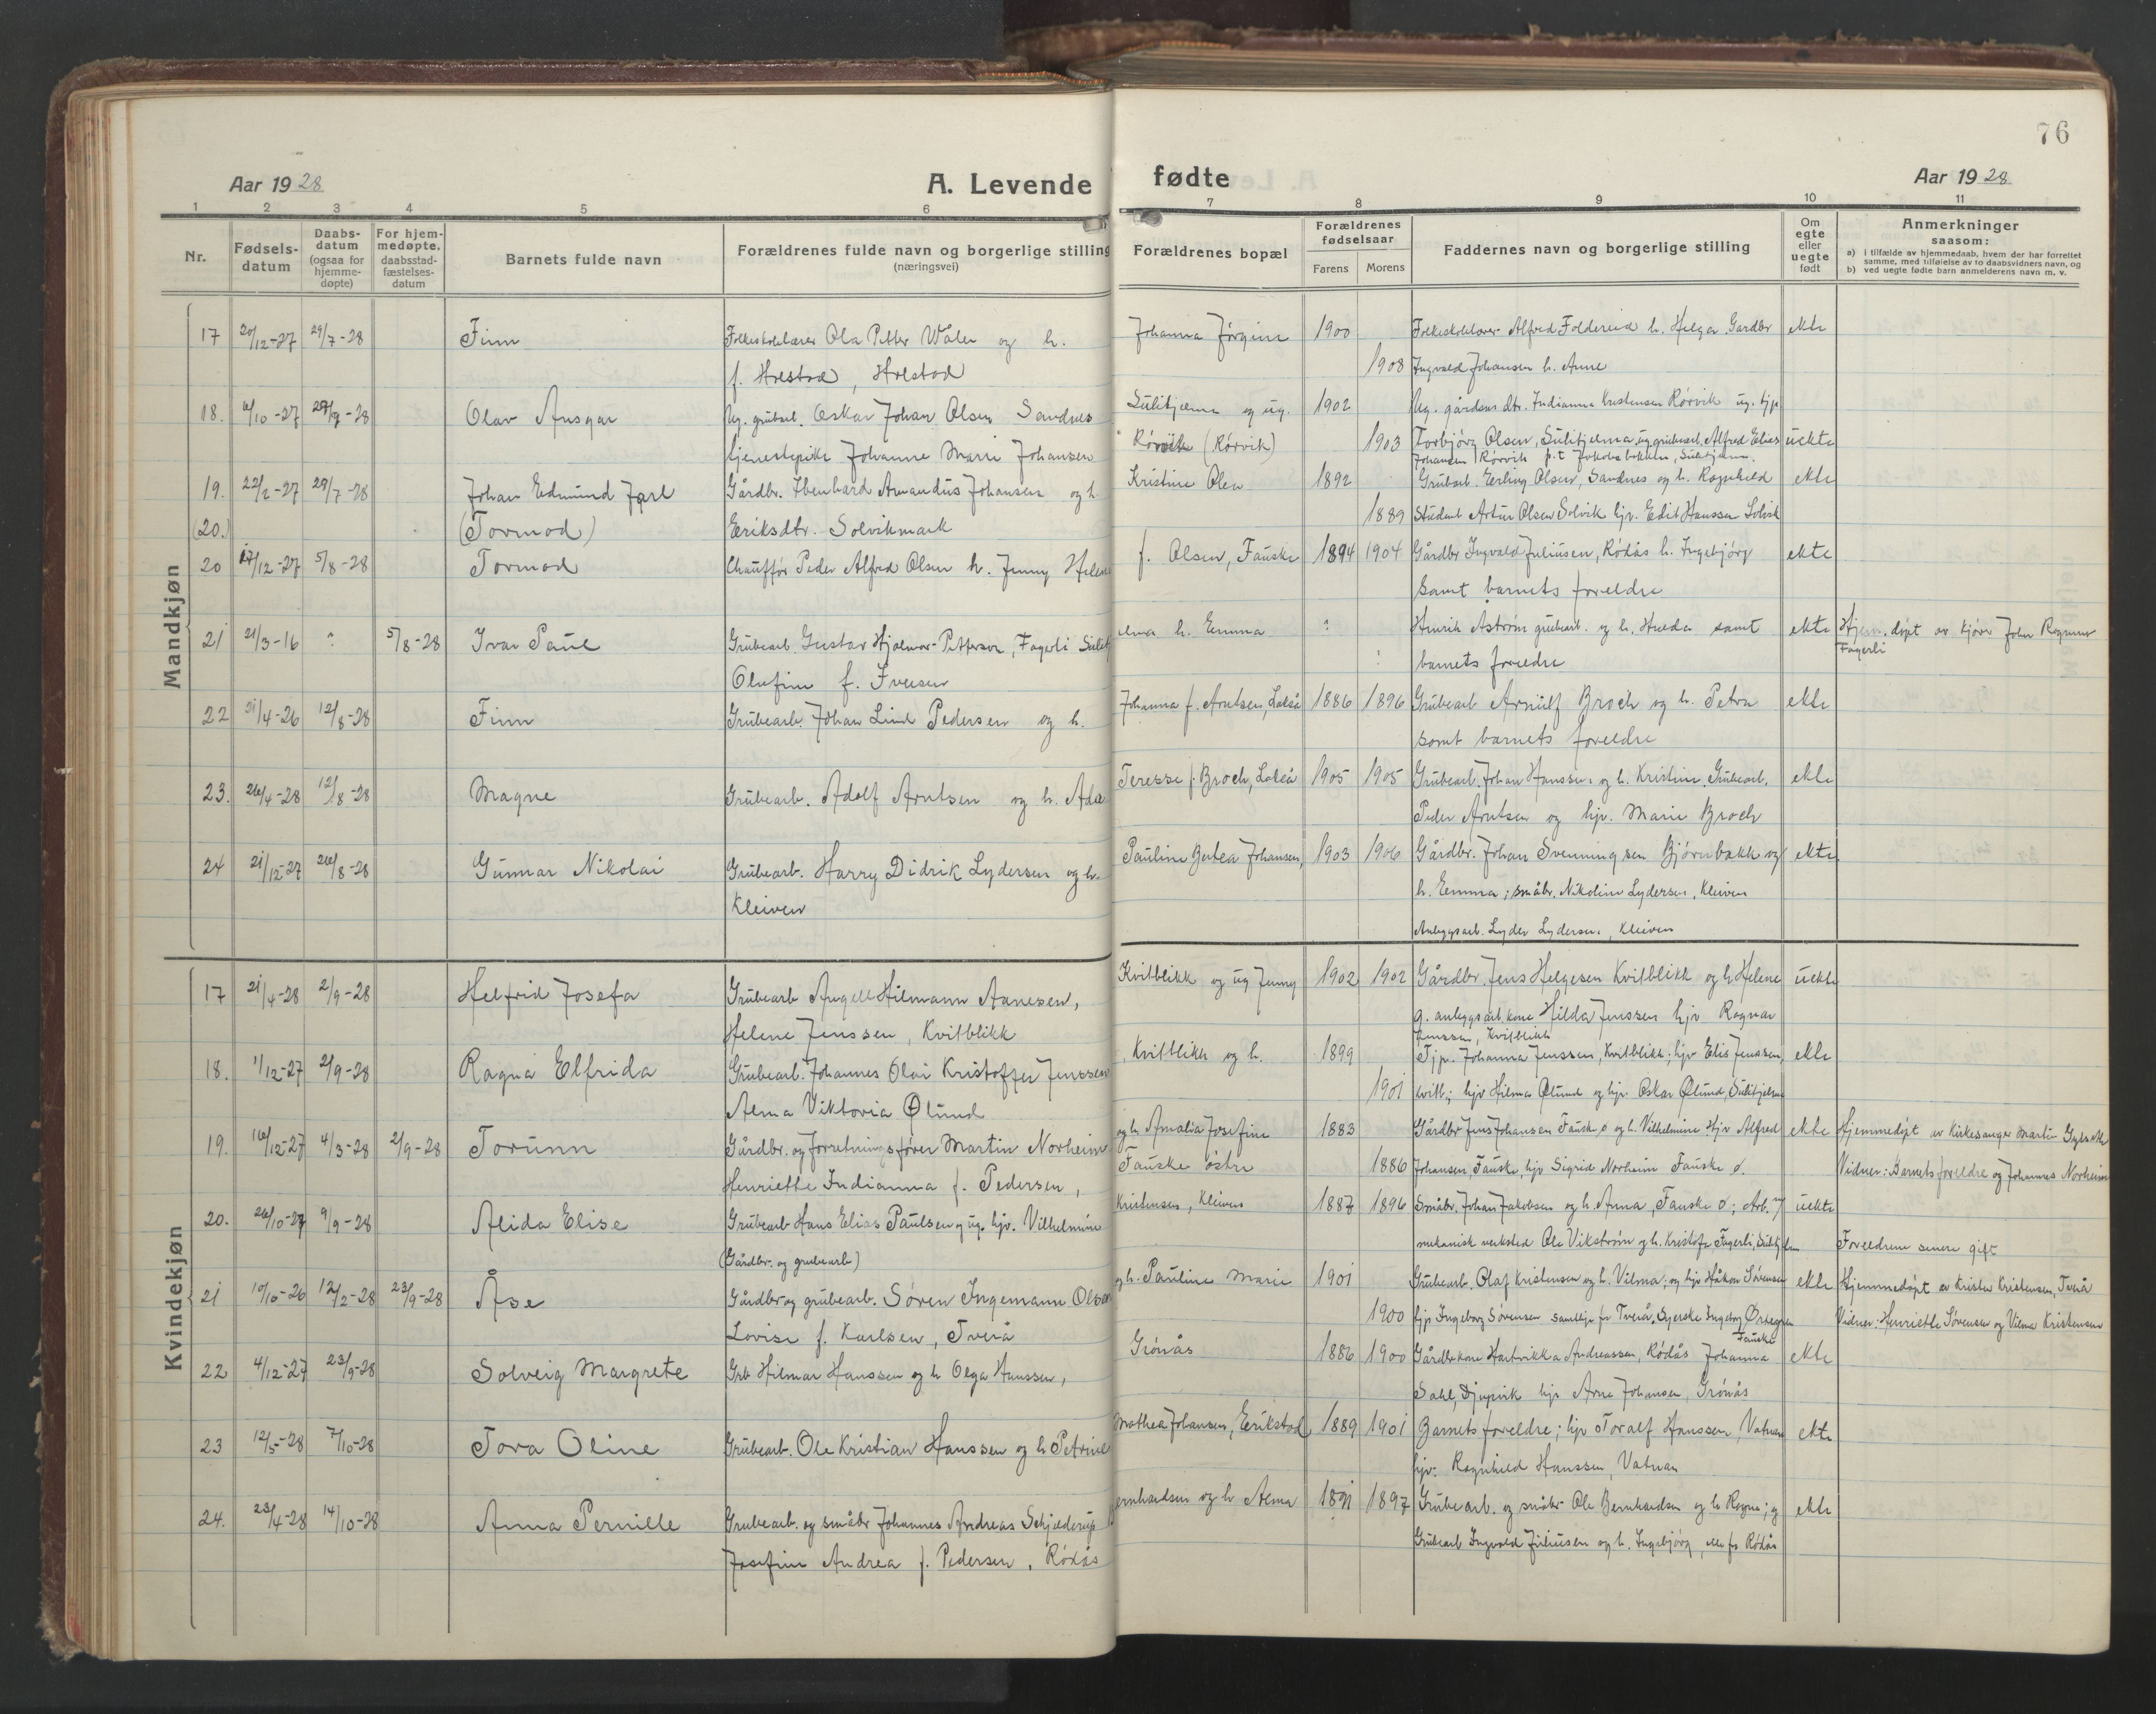 76
Aar 1928
A. Levende fødte
Aar 1928
1 2 3 4 5 6 7 8 9 10 11
Nr.
Fødsels-
datum
Daabs-
datum
(ogsaa for
hjemme-
døpte)
For hjem-
medøpte.
daabsstad-
fæstelses-
datum
Barnets fulde navn
Forældrenes fulde navn og borgerlige stilling
(næringsvei)
Forældrenes bopæl
Forældrenes
fødselsaar
Farens Morens
Faddernes navn og borgerlige stilling
Om
egte
eller
uegte
født
Anmerkninger
saasom:
a) i tilfælde av hjemmedaab, hvem der har forrettet
samme, med tilføielse av to daabsvidners navn, og
b) ved uegte fødte barn anmelderens navn m. v.
Mandkjøn
17 20/12-27 29/7-28 Finn Folkeskolelærer Ola Petter Våler og h. Johanna Jørgine 1900 Folkeskolelærer Alfred Foldereid h. Helga. Gardbr ekte
f. Hrestad, Hrestad 1908 Ingvald Johansen h. Anne
18. 6/10-27 29/7-28 Olav Ansgar Ug. grubarb. Oskar Johan Olsen Sandnes Sulitjelma og ug. 1902 Ug. gårdsdtr. Indianna Kristensen Rørvik ug. tjp
tjenestepike Johanne Marie Johansen Rørvik (Rørvik) 1903 Torbjørg Olsen, Sulitjelma, ug. grubearb. Alfred Elias uekte
Johansen Rørvik p.t Jakobsbakken, Sulitjelma.
19. 22/2-27 29/7-28 Johan Edmund Jarl Gårdbr. Ibenhard Amandus Johansen og h. Kristine Olea 1892 Grubarb. Erling Olsen, Sandnes og h. Ragnhild ekte
(20.) (Tormod) Eriksdtr. Solvikmark 1889 Student Artur Olsen Solvik hjv. Edit Hanssen Solvik
20 17/12-27 5/8-28 Tormod Chauffør Peder Alfred Olsen h. Jenny Helene f. Olsen, Fauske 1894 1904 Gårdbr Ingvald Juliussen, Rødås h. Ingebjørg ekte
samt barnets foreldre
21 21/3-16 ? 5/8-28 Ivar Paul Grubearb. Gustav Hjalmar Pettersen, Fagerli Sulitjelma h. Emma ? Henrik Åstrøm grubearb. og h. Hulda samt ekte Hjem. døpt av kjører John Ragnar
Olufine f. Iversen ? barnets foreldre Fagerli
22 21/4-26 12/8-28 Finn Grubearb. Johan Lind Pedersen og h. Johanna f. Arntsen, Lakså 1886 1896 Grubearb Arnulf Broch og h. Petra ekte
samt barnets foreldre
23. 26/4-28 12/8-28 Magne Grubearb. Adolf Arntsen og h. Ada Teresse f. Broch, Lakså 1905 1905 Grubearb. Johan Hanssen og h. Kristine. Grubearb. ekte
Peder Arntsen og hjv. Marie Broch
24 21/12-27 26/8-28 Gunnar Nikolai Grubearb. Harry Didrik Lydersen og h. Pauline Bertea Johansen, 1903 1906 Gårdbr. Johan Svenningsen Bjørnbakk og ekte
Kleiven h. Emma; småbr. Nikoline Lydersen, Kleiven
Anleggsarb. Lyder Lydersen, Kleiven
Kvindekjøn
17 21/4-28 2/9-28 Helfrid Josefa Grubearb Angell Hilmann Aanesen, Kvitblikk og ug Jenny 1902 1902 Gårdbr. Jens Helgesen Kvitblikk og h Helene uekte
Helene Jenssen, Kvitblikk g. anleggsarb. kone Hilda Jenssen hjv Ragnar
Jenssen, Kvitblikk
18. 1/12-27 2/9-28 Ragna Elfrida Grubearb. Johannes Olai Kristoffer Jenssen, Kvitblikk og h. 1899 Tjp. Johanna Jenssen, Kvitblikk; hjv Elis Jenssen, ekte
Alma Viktoria Ølund 1901 Kvitb; hjv Hilma Ølund og hjv. Oskar Ølund, Sulitjelma
19. 16/12-27 4/3-28 2/9-28 Torunn Gårdbr. og forretningsfører Martin Norheim og h Amalia Josefine 1883 Gårdbr Jens Johansen Fauske ø og h. Vilhelmine Hjv Alfred ekte Hjemmedøpt av Kirkesanger Martin
Henriette Indianna f. Pedersen, Fauske østre 1886 Johansen, Fauske, hjv Sigrid Norheim Fauske ø. Vidner: Barnets foreldre og Johannes Norheim
20. 26/10-27 9/9-28 Alida Elise Grubearb Hans Elias Paulsen og ug. hjv. Vilhelmine Kristensen, Kleiven 1887 1896 Småbr. Johan Jakobsen og h. Anna, Fauske ø; Arb. v/ uekte
(Gårdbr. og grubearb) mekanisk verksted Ole Vikstrøm og h. Kristofa Fagerli, Sulitjelma Foreldrene senere gift
21 10/10-26 12/2-28 23/9-28 Åse Gårdbr og grubearb. Søren Ingemann Olsen og h. Pauline Marie 1901 Grubearb. Olaf Kristensen og h. Vilma; og hjv Håkon Sørensen ekte Hjemmedøpt av Krister Kristensen, Tverå
Lovise f. Karlsen, Tverå 1900 hjv Ingeborg Sørensen samtlige fra Tverå. Syerske Ingeborg Vidner: Henriette Sørensen og Vilma Kristensen
Fauske
22 4/12-27 23/9-28 Solveig Margrete Grb Hilmar Hanssen og h Olga Hanssen, Grønås 1886 1900 Gårdbrkone Hartvikka Andreassen, Rødås Johanna ekte
Dahl, Djupvik hjv Arne Johansen, Grønås
23 12/5-28 7/10-28 Tora Oline Grubearb. Ole Kristian Hanssen og h Petrine Mathea Johansen, Erikstad 1889 1901 Barnets foreldre; hjv Toralf Hanssen, Vatnan ekte
hjv. Ragnhild Hanssen, Vatnan
24. 23/4-28 14/10-28 Anna Pernille Grubearb. og småbr Johannes Andreas Schjelderup Bernhardsen og h Alma 1891 1897 Grubearb. og småbr Ole Bernhardsen og h Ragna; og ekte
Josefine Andrea f. Pedersen, Rødås Grubearb Ingvald Juliussen og h. Ingebjørg, alle fr Rødås